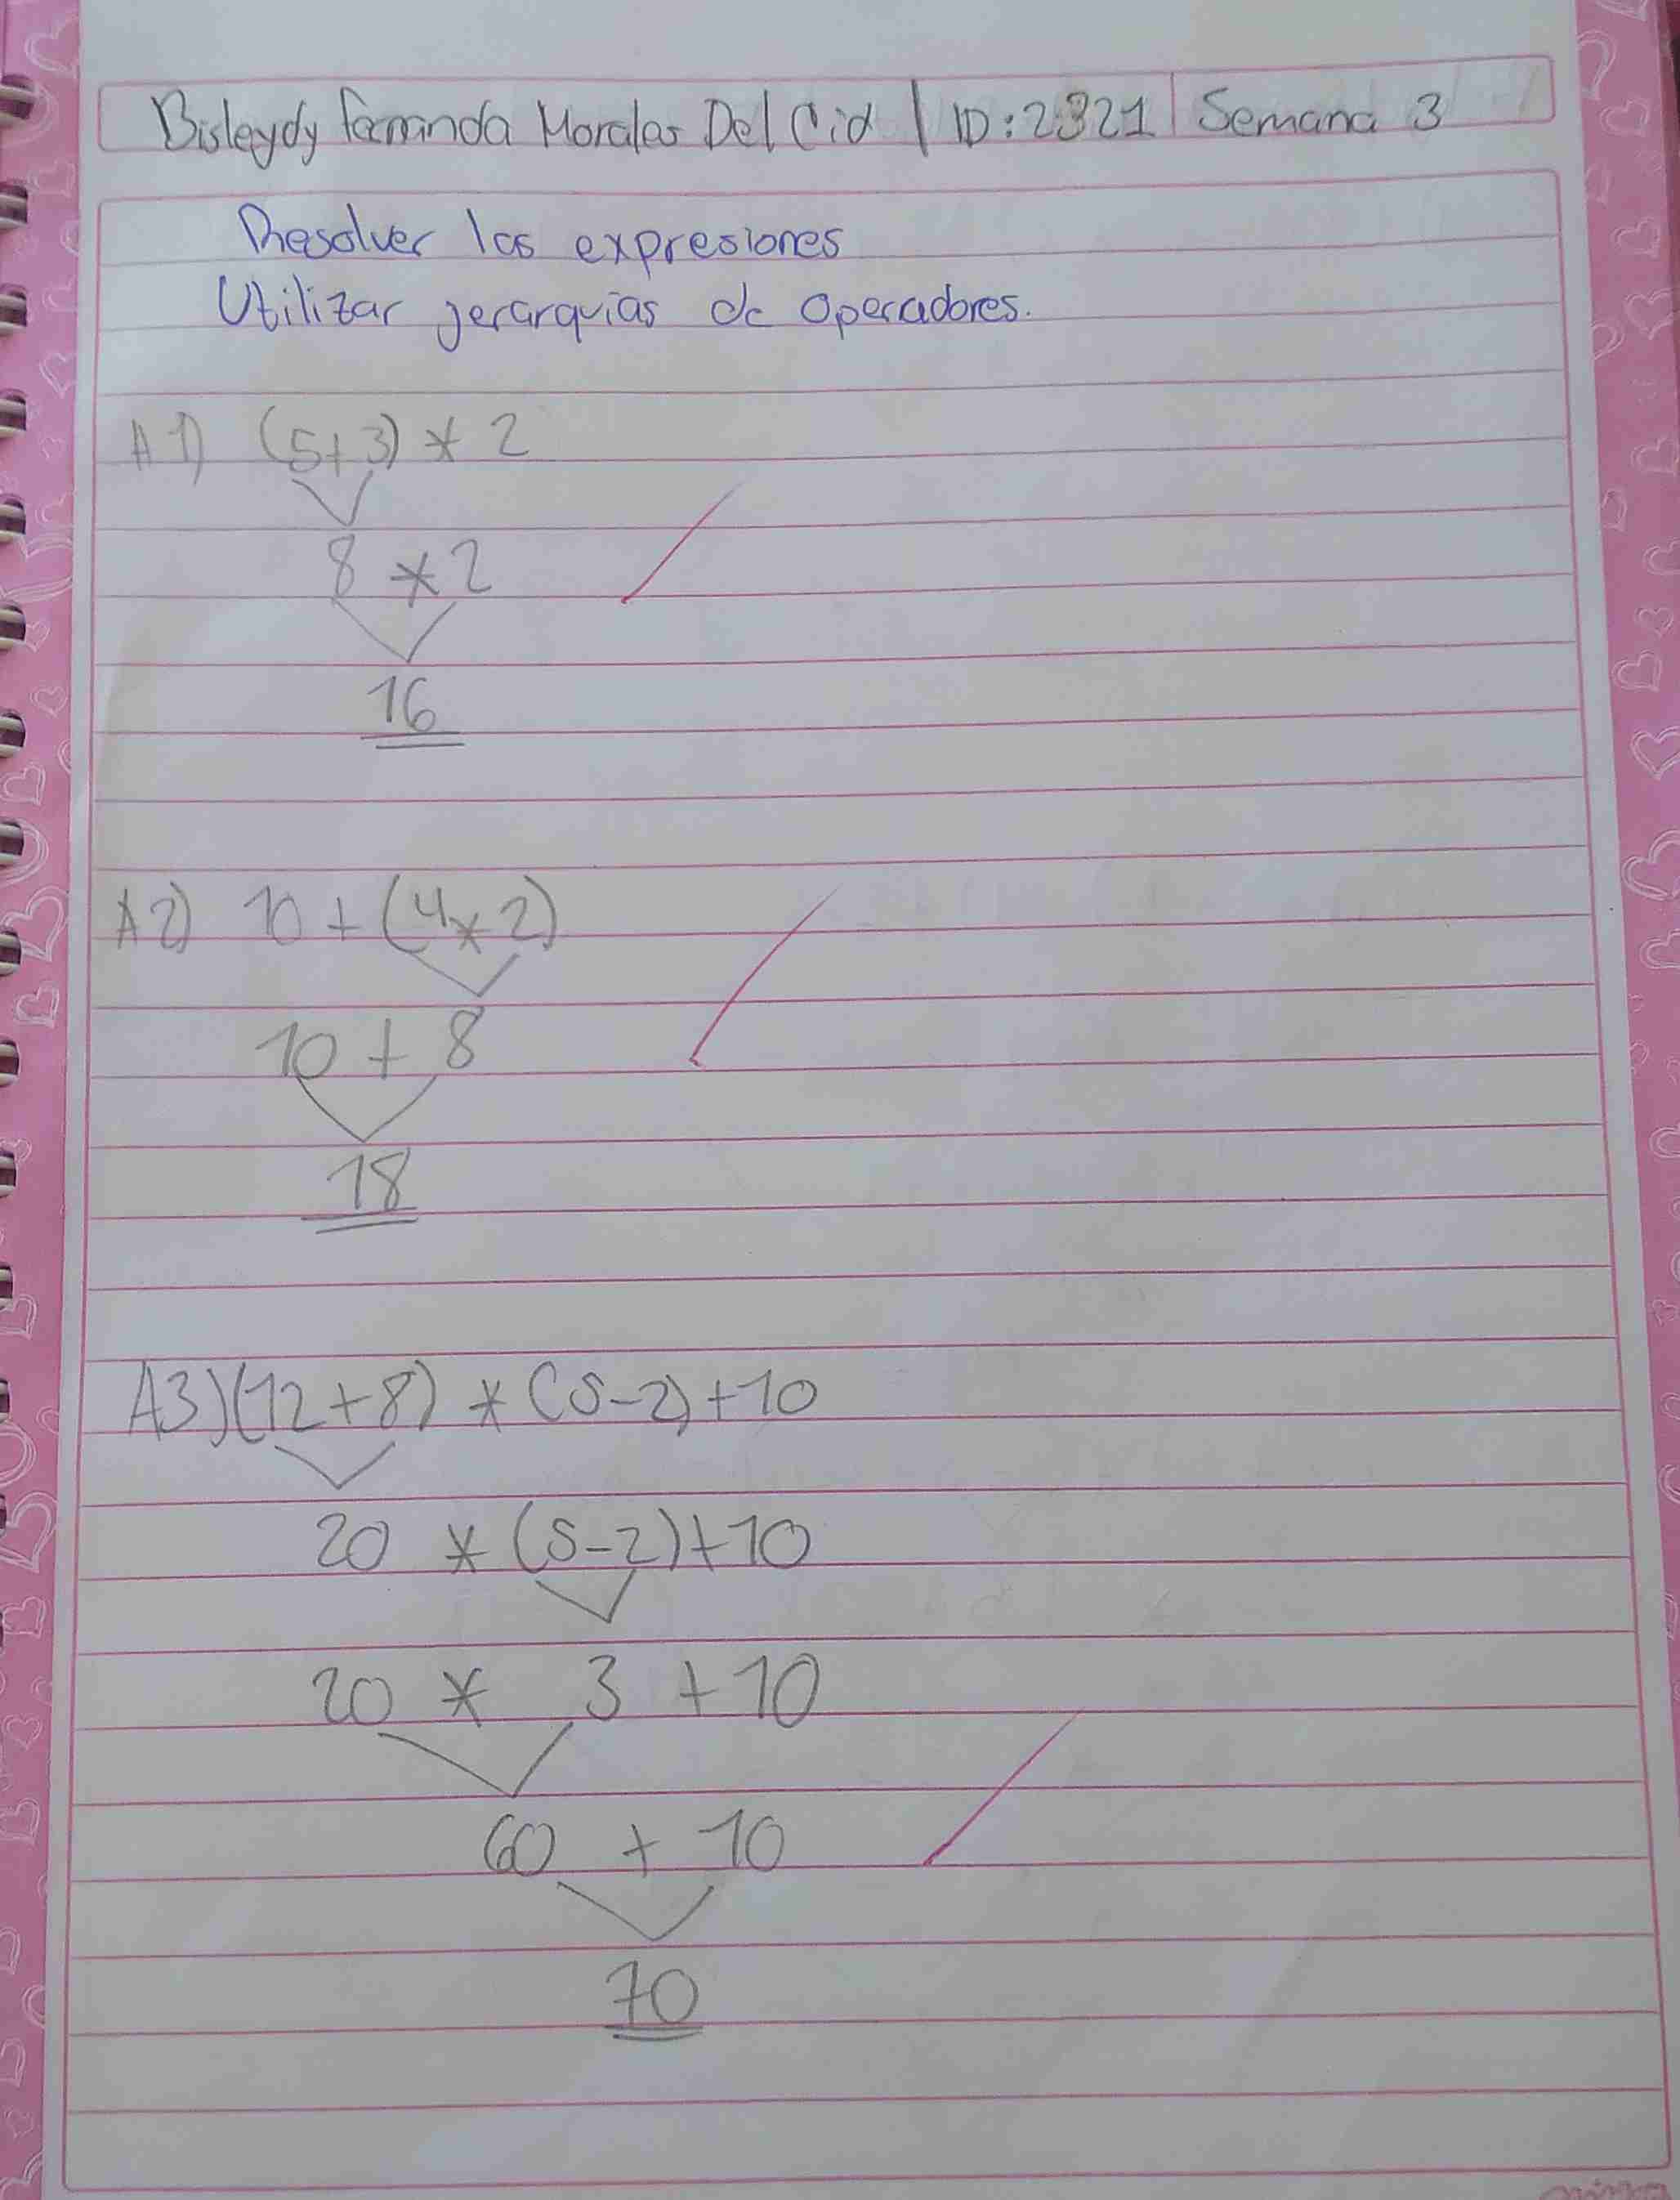 Bisleydy Fernanda Morales Del Cid | ID: 2321 | Semana 3
Resolver las expresiones
Utilizar jerarquias de operadores.
A1) (5+3) * 2
8 * 2
16
A2) 10 + (4*2)
10 + 8
18
A3) (12+8) * (5-2)+10
20 * (5-2)+10
20 * 3 + 10
60 + 10
70